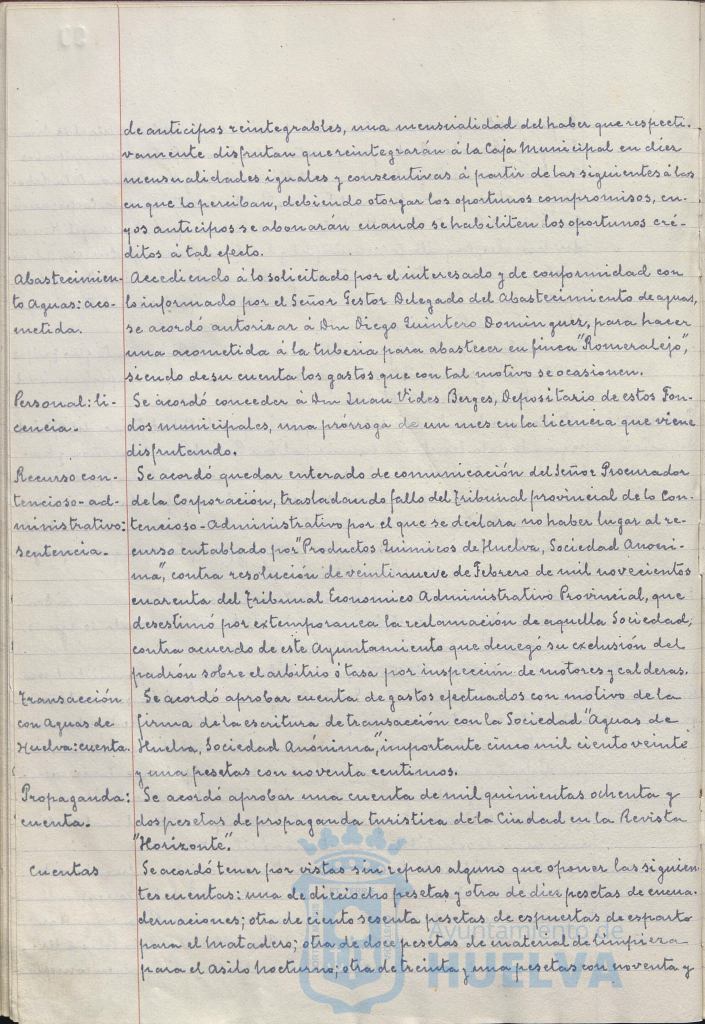 de anticipos reintegrables, una mensualidad del haber que respecti-
vamente disfrutan que reintegrarán á la Caja Municipal en diez
mensualidades iguales y consecutivas á partir de las siguientes á las
en que lo perciban, debiendo otorgar los oportunos compromisos, cu-
yos anticipos se abonarán cuando se habiliten los oportunos cré-
ditos á tal efecto.
Abastecimien-
to Aguas: aco-
metida.
Accediendo á lo solicitado por el interesado y de conformidad con
lo informado por el Señor Gestor Delegado del Abastecimiento de aguas,
se acordó autorizar á Don Diego Quintero Dominguez, para hacer
una acometida á la tuberia para abastecer su finca "Romeralejo",
siendo de su cuenta los gastos que con tal motivo se ocasionen.
Personal: li-
cencia.
Se acordó conceder á Don Juan Vides Berges, Depositario de estos Fon-
dos municipales, una prórroga de un mes en la licencia que viene
disfrutando.
Recurso con-
tencioso-ad-
ministrativo:
sentencia.
Se acordó quedar enterado de comunicación del Señor Procurador
de la Corporación, trasladando fallo del Tribunal provincial de lo Con-
tencioso-Administrativo por el que se declara no haber lugar al re-
curso entablado por "Productos Quimicos de Huelva, Sociedad Anoni-
ma", contra resolución de veintinueve de Febrero de mil novecientos
cuarenta del Tribunal Economico Administrativo Provincial, que
desestimó por extemporanea la reclamación de aquella Sociedad,
contra acuerdo de este Ayuntamiento que denegó su exclusión del
padrón sobre el arbitrio ó tasa por inspección de motores y calderas.
Transacción
con Aguas de
Huelva: cuenta.
Se acordó aprobar cuenta de gastos efectuados con motivo de la
firma de la escritura de transacción con la Sociedad "Aguas de
Huelva, Sociedad Anónima", importante cinco mil ciento veinte
y una pesetas con noventa centimos.
Propaganda:
cuenta.
Se acordó aprobar una cuenta de mil quinientas ochenta y
dos pesetas de propaganda turistica de la Ciudad en la Revista
"Horizonte".
Cuentas
Se acordó tener por vistas sin reparo alguno que oponer las siguien-
tes cuentas: una de dieciocho pesetas y otra de diez pesetas de encua-
dernaciones; otra de ciento sesenta pesetas de espuertas de esparto
para el Matadero; otra de doce pesetas de material de limpieza
para el Asilo Nocturno; otra de treinta y una pesetas con noventa y
Ayuntamiento de
HUELVA